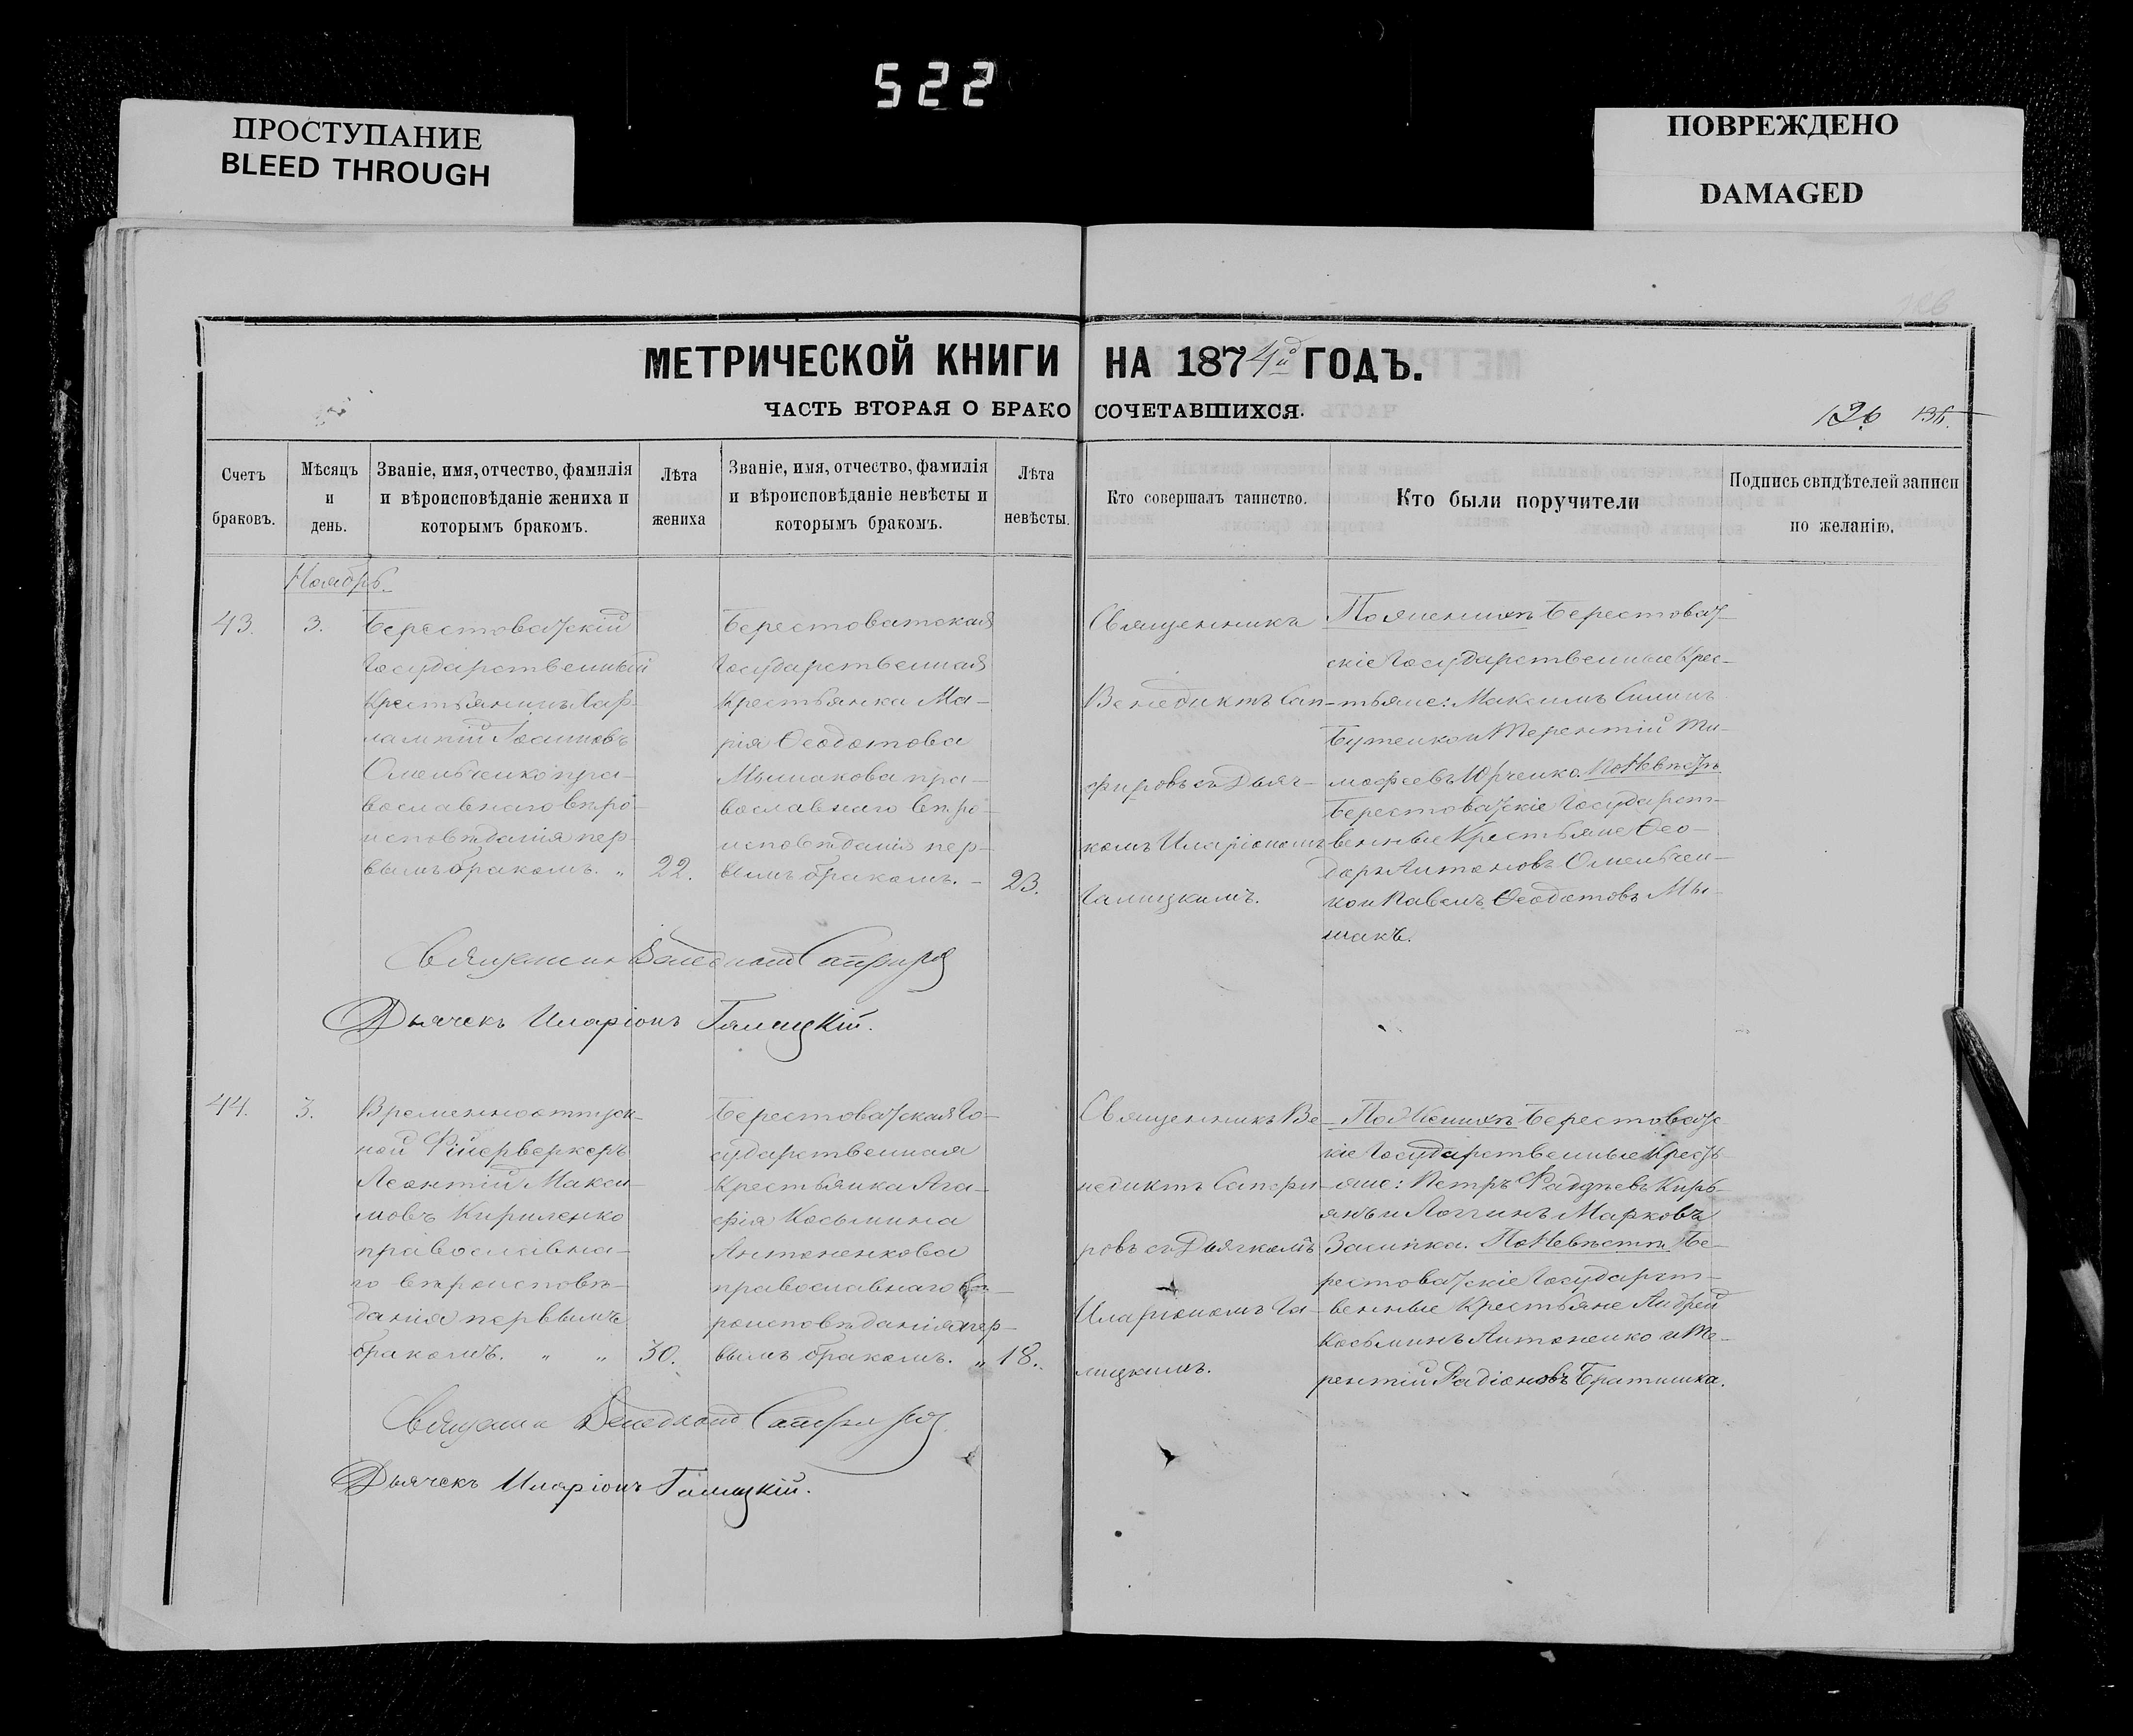 522
ПРОСТУПАНИЕ
BLEED THROUGH
ПОВРЕЖДЕНО
DAMAGED
МЕТРИЧЕСКОЙ КНИГИ НА 1874й ГОДЪ.
ЧАСТЬ ВТОРАЯ О БРАКОСОЧЕТАВШИХСЯ.
126
Счетъ
браковъ.
Мѣсяцъ
и
день.
Званіе, имя, отчество, фамилія
и вѣроисповѣданіе жениха и
которымъ бракомъ.
Лѣта
жениха
Званіе, имя, отчество, фамилія
и вѣроисповѣданіе невѣсты и
которымъ бракомъ.
Лѣта
невѣсты.
Кто совершалъ таинство.
Кто были поручители
Подпись свидѣтелей записи
по желанію.
Ноябрь.
43.
3.
Берестоватскій
Государственный
Крестьянинъ Хар-
лампій
Омельченко пра-
вославнаго вѣро-
исповѣданія пер-
вымъ бракомъ. „
22.
Берестоватская
Государственная
Крестьянка Ма-
рія Ѳеодотова
Мышакова пра-
вославнаго вѣро-
исповѣданія пер-
вымъ бракомъ. -
23.
Священникъ
Венедиктъ Сап-
фировъ съ Дьяч-
комъ Иларіономъ
Галицкимъ.
По Женихѣ Берестоват-
скіе Государственные Крес-
тьяне: Максимъ Силинъ
Бутенко и Терентій Ти-
мофеевъ Юрченко. По Невѣстѣ
Берестоватскіе Государст-
венные Крестьяне Ѳео-
доръ Антоновъ Омельчен-
ко и Павелъ Ѳеодотовъ Мы-
шакъ.
Священник Венедикт Сапфиров
Дьячекъ Иларіонъ Галицкій.
44.
3.
Временноотпуск-
ной Фейерверкеръ
Леонтій Макси-
мовъ Кириленко
православна-
го вѣроисповѣ-
данія первымъ
бракомъ. „ „
30.
Берестоватская Го-
сударственная
Крестьянка Ага-
фія Косьмина
Антоненкова
православнаго вѣ-
роисповѣданія пер-
вымъ бракомъ. „
18.
Священникъ Ве-
недиктъ Сапфи-
ровъ съ Дьячкомъ
Иларіономъ Га-
лицкимъ.
По Женихѣ Берестоватс-
кіе Государственные Кресть-
яне: Петръ Фаддѣевъ Кирь-
янъ и Логгинъ Марковъ
Засипка. По Невѣстѣ Бе-
рестоватскіе Государст-
венные Крестьяне Андрей
Косьминъ Антоненко и Те-
рентій Радіоновъ Братишка.
Священник Венедикт Сапфиров
Дьячекъ Иларіонъ Галицкій.